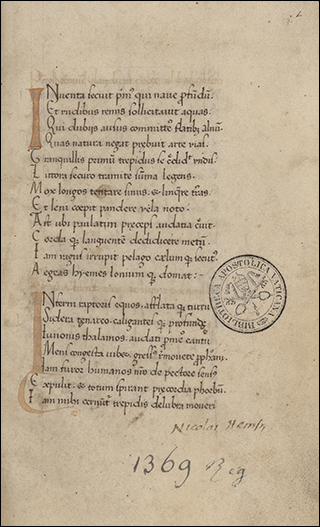 INventa secuit prim' qui naue ꝓfundū.
Et rudibus remis sollicitauit aquas.
Qui dubiis ausus committe' flatib; alnū.
Quas natura negat prebuit arte uias.
Tranquillis primū trepidus se c̄didit undis
Littora securo tramite summa legens.
Mox longos tentare sinus, & linqre t̄ras
Et leni coepit pandere uela noto.
Ast ubi paulatim preceps audatia c̄uit
Cordaq; languentē dedidicere metū.
Iam uagus irrupit pelago caelumq; secut'
Aegeas hyemes Ioniumq; domat:
Inferni raptoris equos, afflataq; curru
Sidera tenareo, caligantesq; profundę
Iunonis thalamos, audaci ꝓmere cantu
Mens congesta iubet; gress' remouete ꝓphani,
Iam furor humanos nr̄o de pectore sensus
Expulit, & totum spirant precordia phoebū,
Iam mihi cernunt' trepidis delubra moueri
BIBLIOTHECA APOSTOLICA VATICANA
Nicolai
1369 Reg